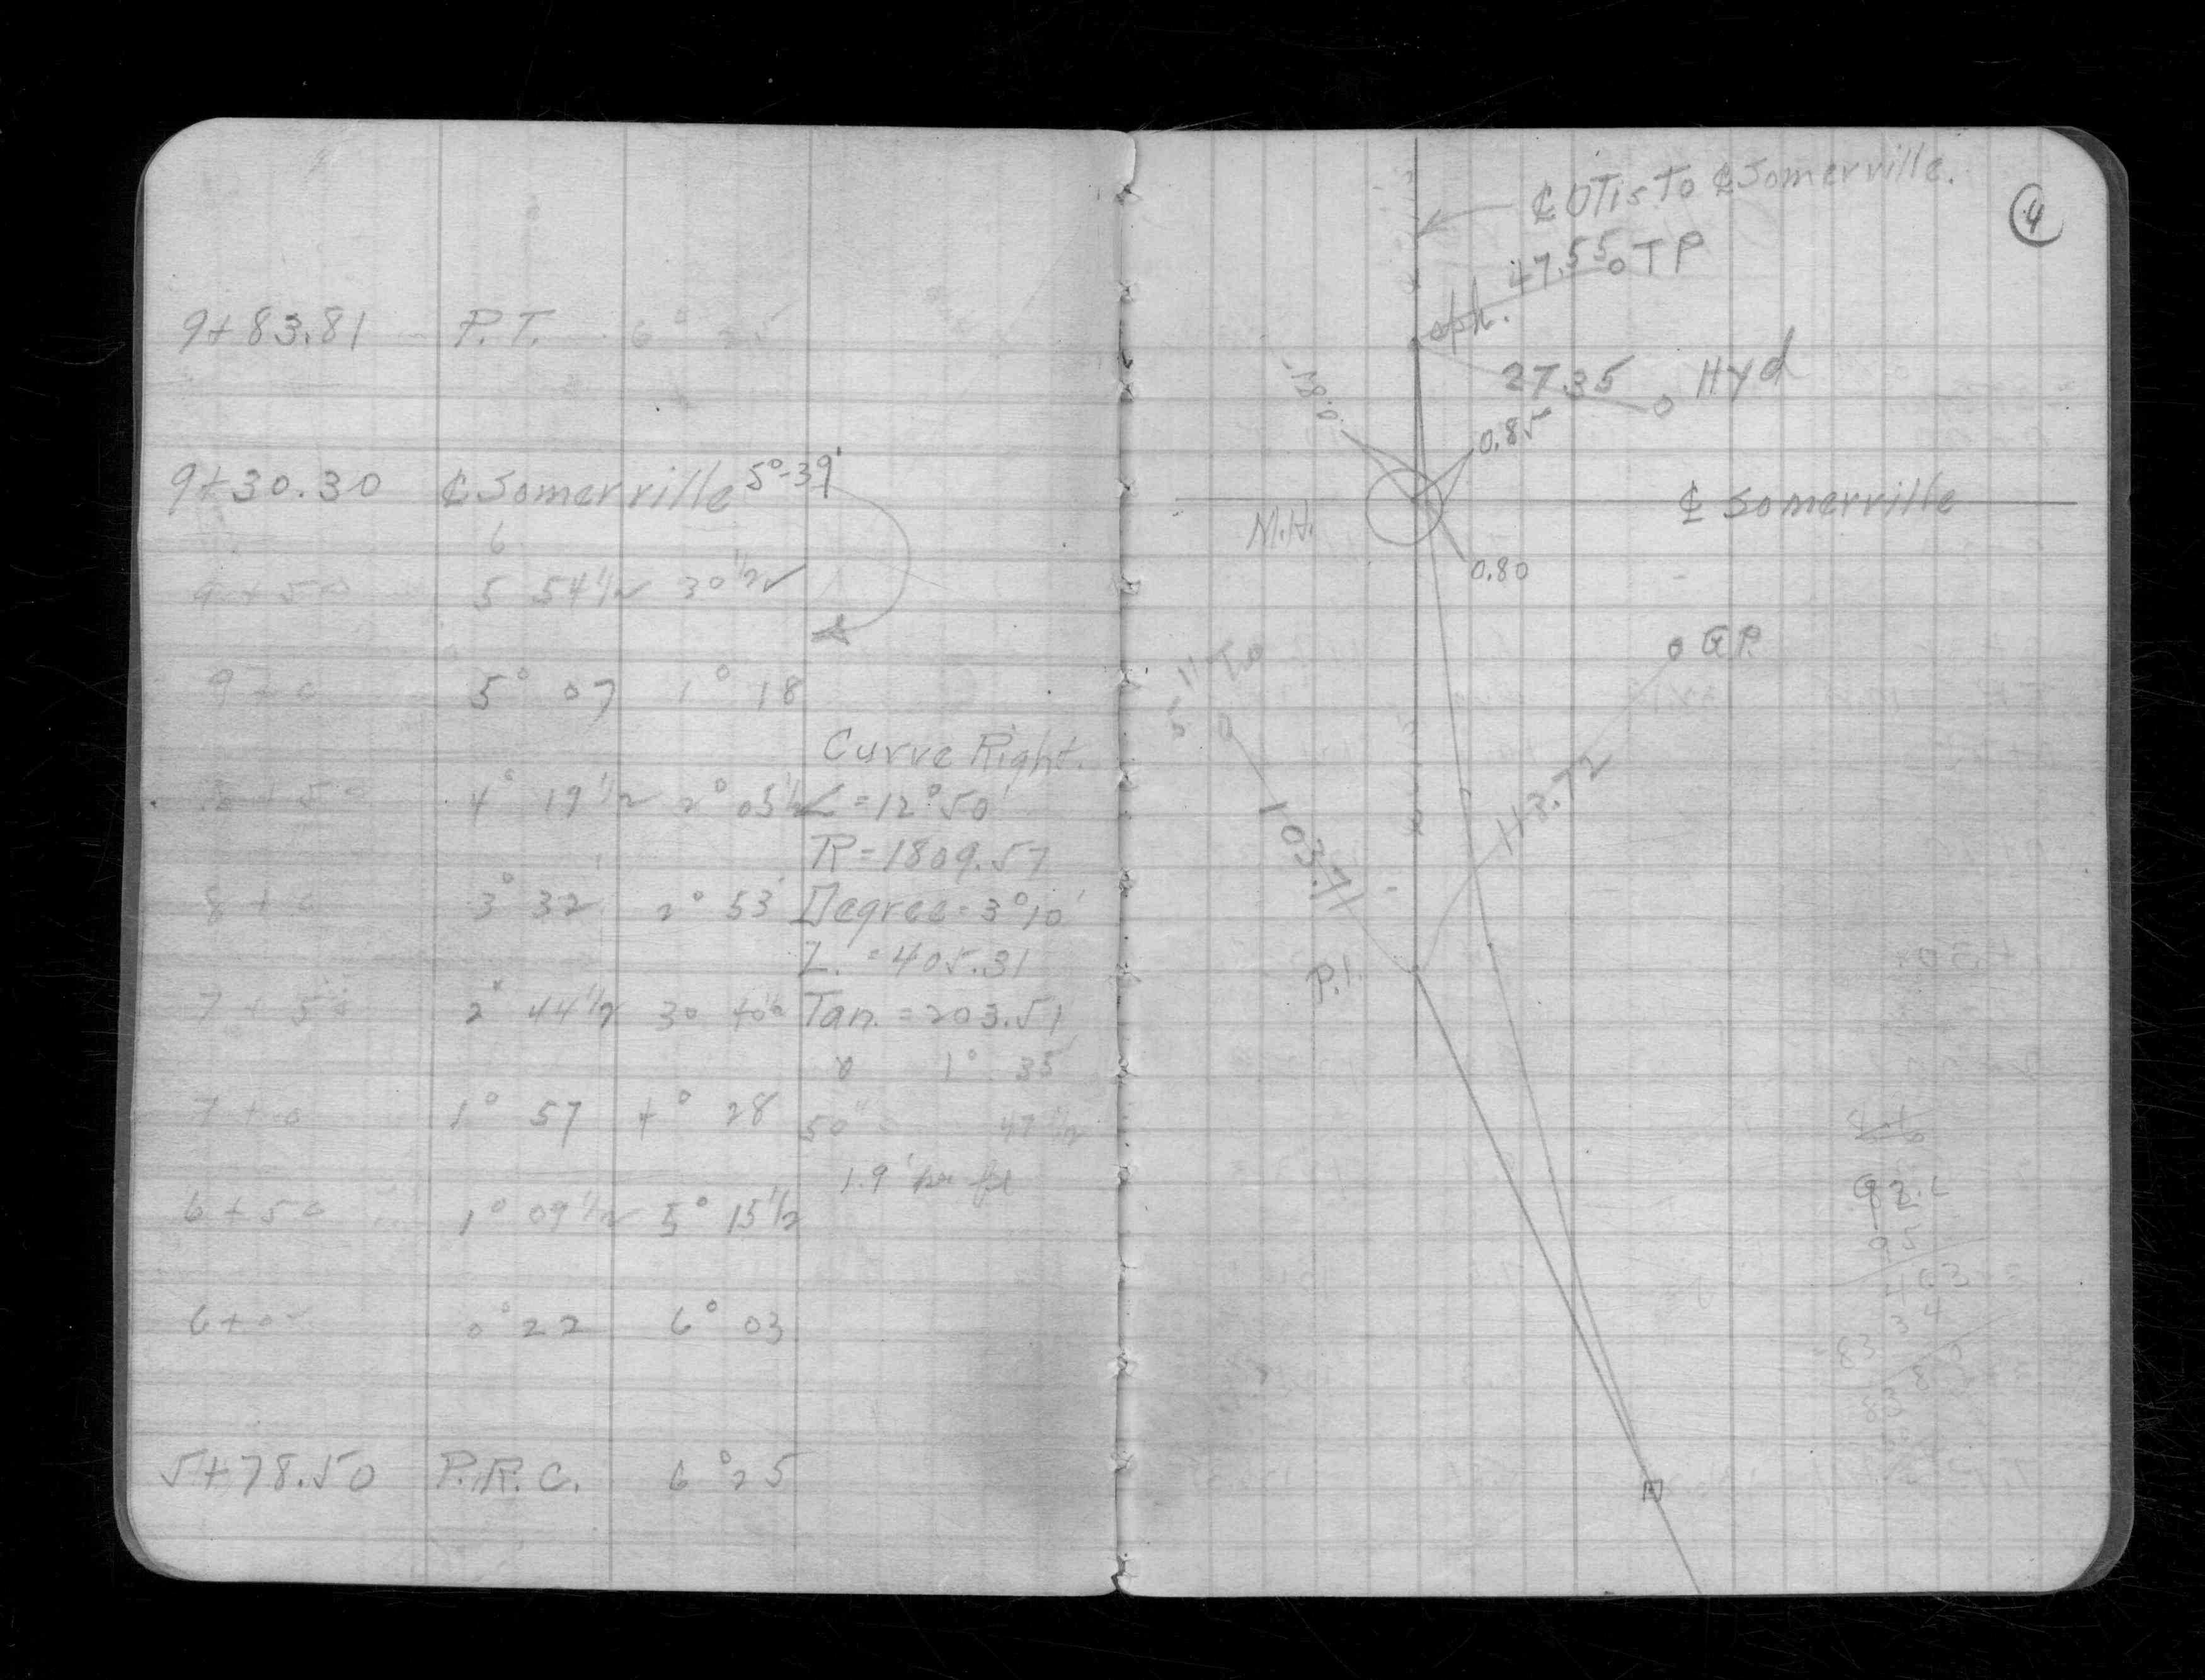 9+83.81 P.T. 6° 25
9+30.30 ℄ Somerville 5°-39'
6
9+50 5 54½ 30½✓
9+0 5° 07 1° 18
Curve Right.
8+50 4° 19½ 2° 05½ ∠=12°50'
R=1809.57
8+0 3° 32 2° 53' Degree=3°10'
L.=405.31
7+50 2° 44½ 30 40½ Tan.=203.51
1° 35
7+0 1° 57 4° 28 50' 47½
1.9' per ft
6+50 1° 09½ 5° 15½
6+0 0° 22 6° 03
5+78.50 P.R.C. 6° 25
4
℄ Otis To ℄ Somerville.
47.55 TP
sph.
27.35 Hyd
0.85
M.H.
℄ Somerville
0.80
G.P.
5"
103.71
113.72
P.I.
95
463
83 34
83 80